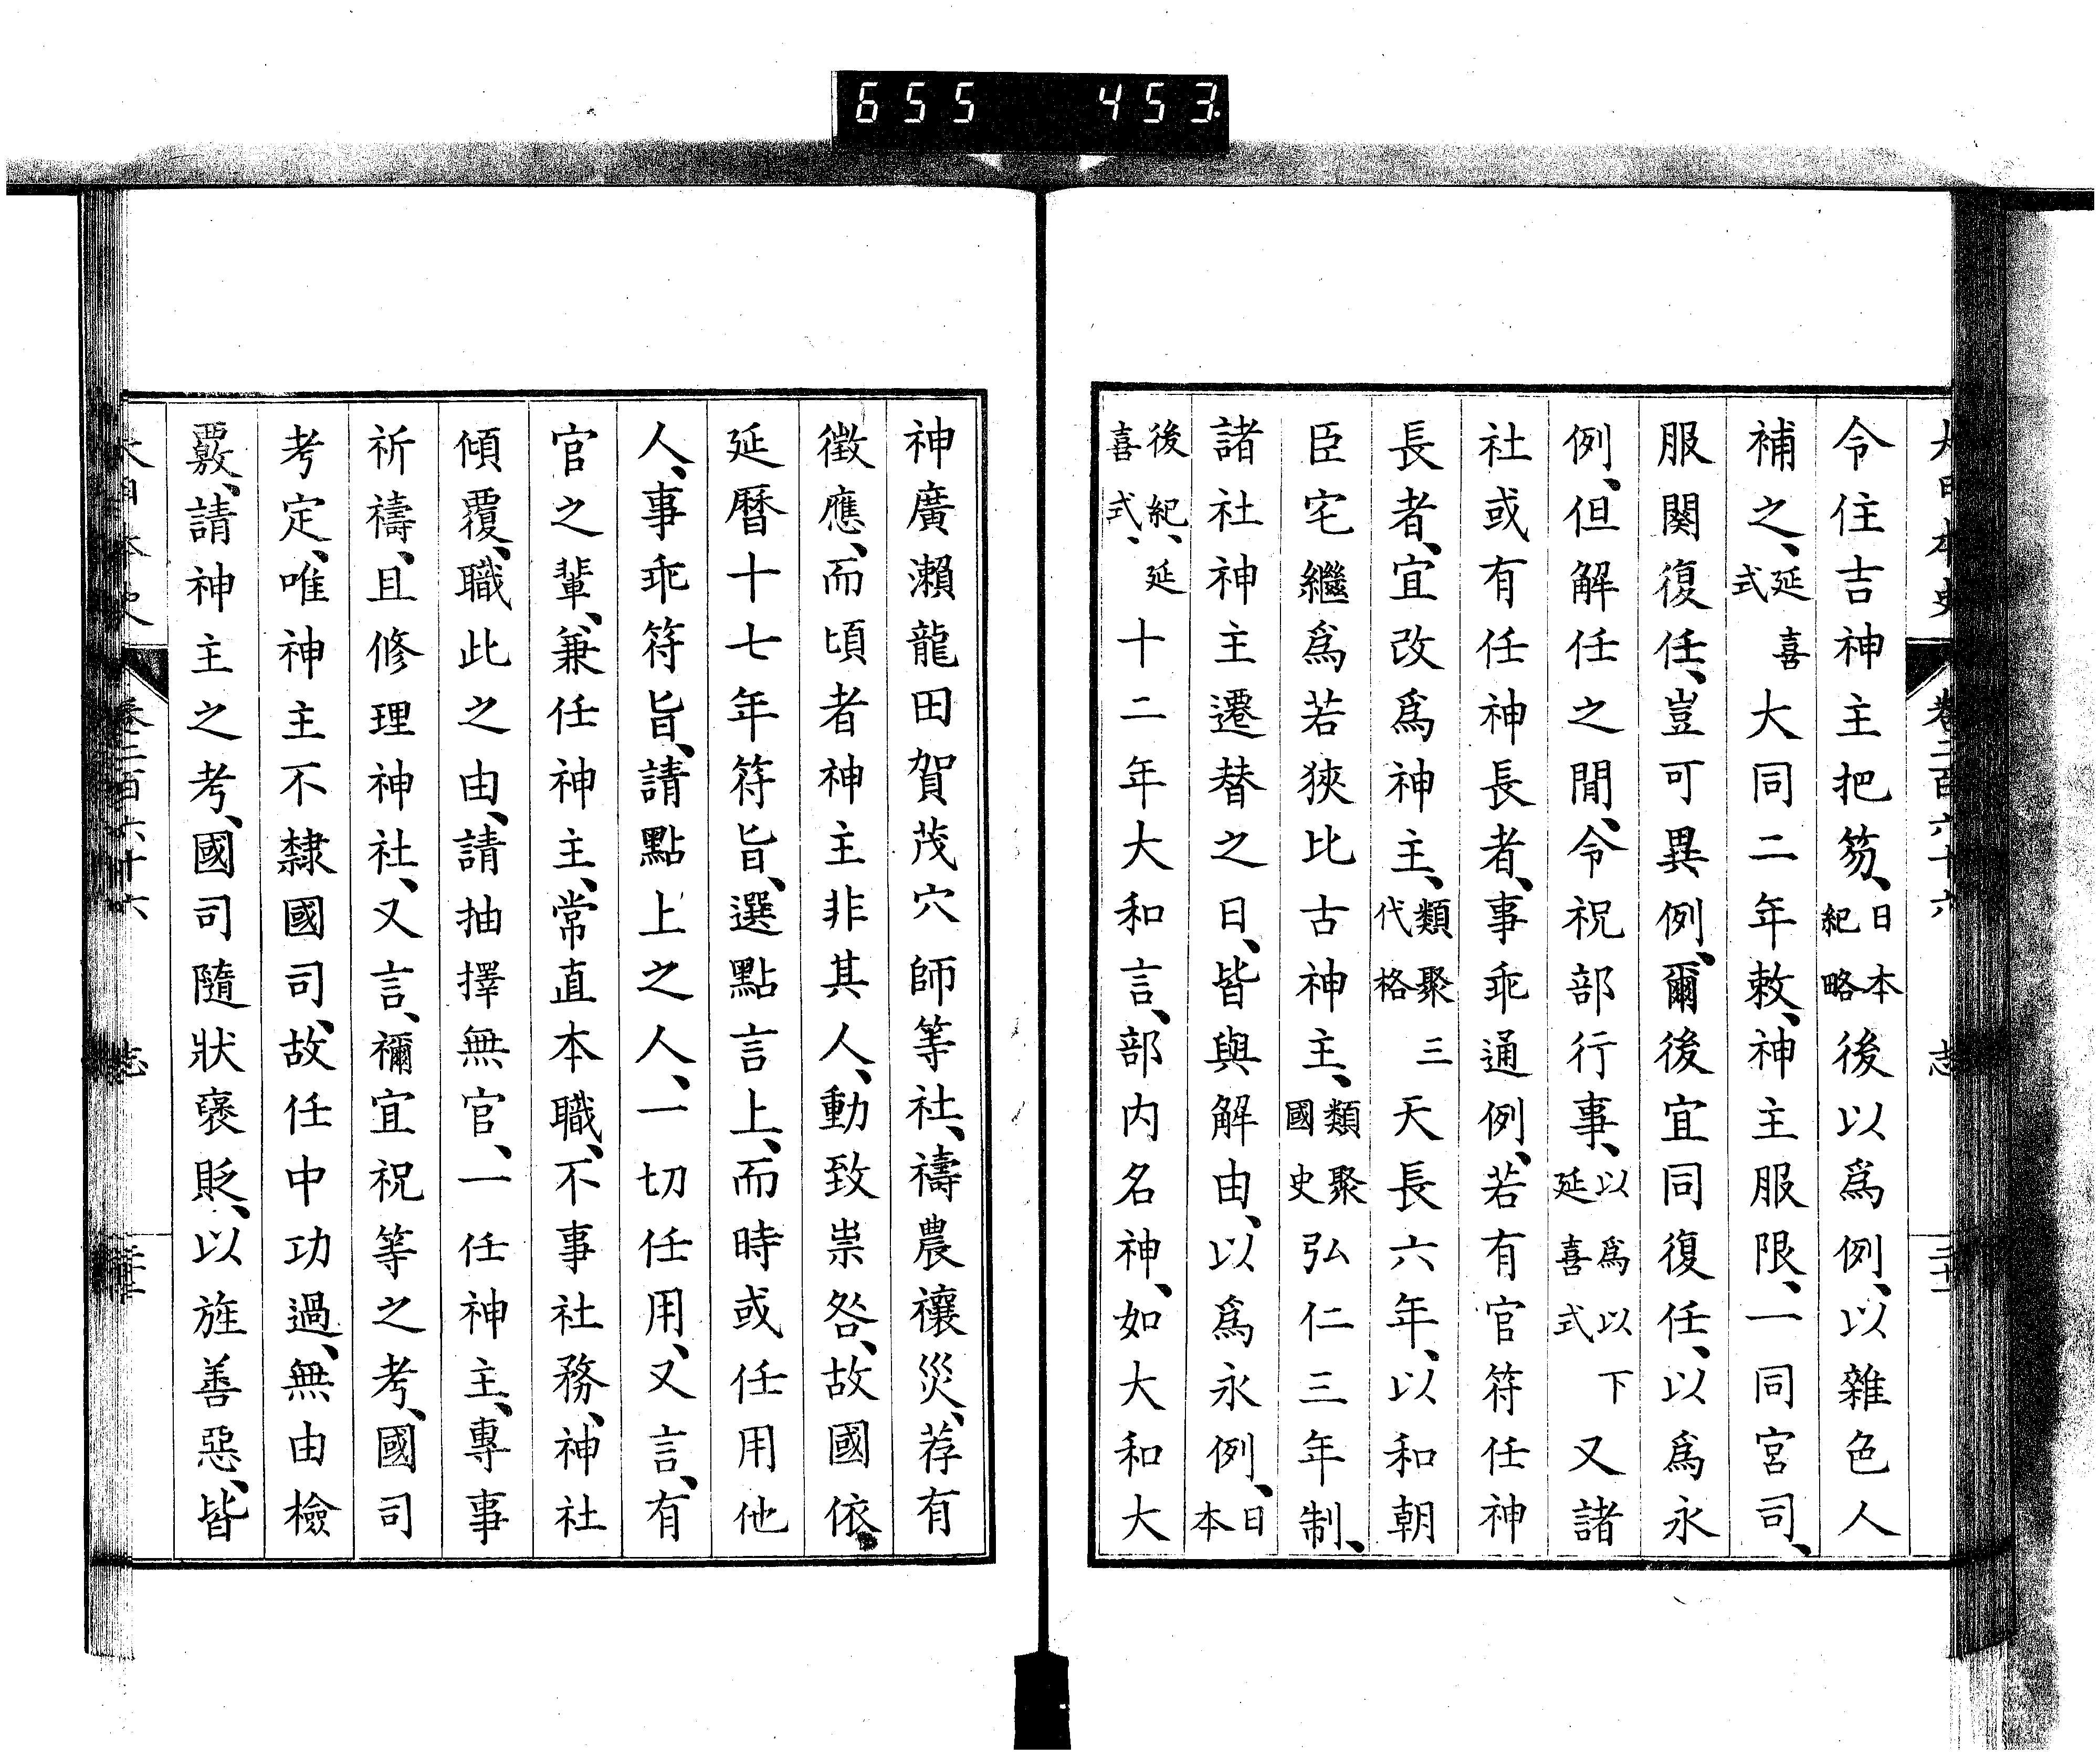 655 453.
大日本史 卷二百六十六 志
令住吉神主把笏、日本紀略後以爲例、以雜色人
補之、延喜式大同二年敕、神主服限、一同宮司、
服闋復任、豈可異例、爾後宜同復任、以爲永
例、但解任之間、令祝部行事、以爲以下延喜式又諸
社或有任神長者、事乖通例、若有官符任神
長者、宜改爲神主、類聚三代格天長六年、以和朝
臣宅繼爲若狹比古神主、類聚國史弘仁三年制、
諸社神主遷替之日、皆與解由、以爲永例、日本
後紀、延喜式、十二年大和言、部内名神、如大和大
神廣瀨龍田賀茂穴師等社、禱農禳災、荐有
徵應、而頃者神主非其人、動致祟咎、故國依
延曆十七年符旨、選點言上、而時或任用他
人、事乖符旨、請點上之人、一切任用、又言、有
官之輩、兼任神主、常直本職、不事社務、神社
傾覆、職此之由、請抽擇無官、一任神主、專事
祈禱、且修理神社、又言、禰宜祝等之考、國司
考定、唯神主不隸國司、故任中功過、無由檢
覈、請神主之考、國司隨狀褒貶、以旌善惡、皆
大日本史 卷二百六十六 志